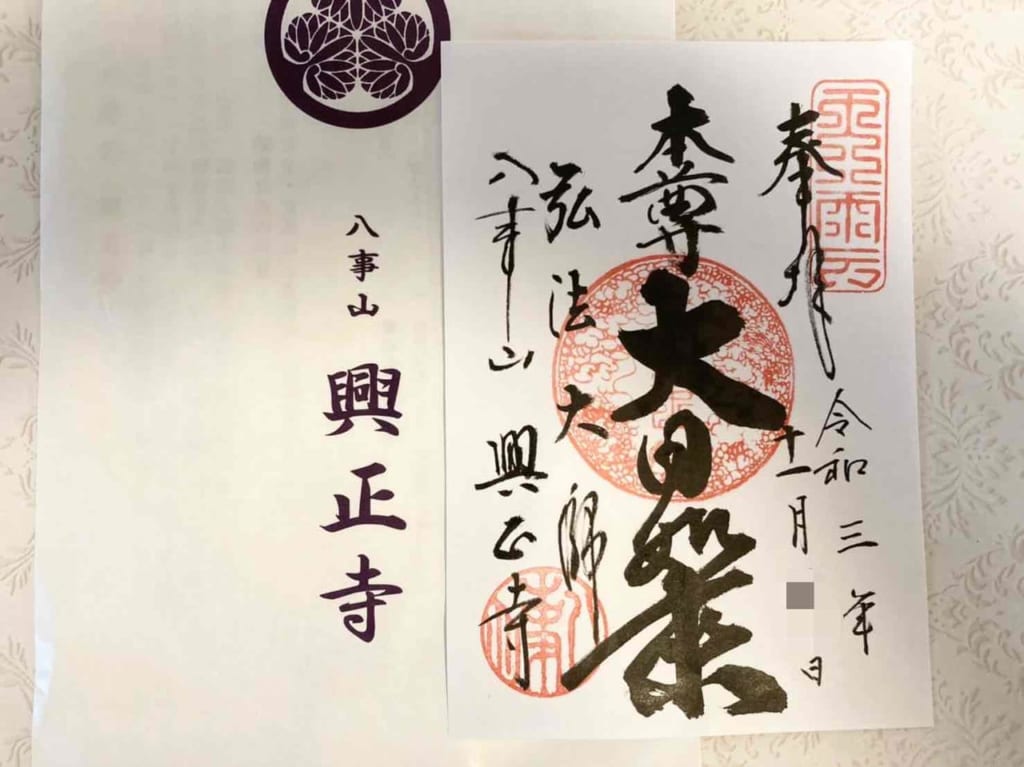 八事山
興正寺
奉拝
令和三年
十一月 日
本尊
大日如来
弘法大師
八事山
興正寺